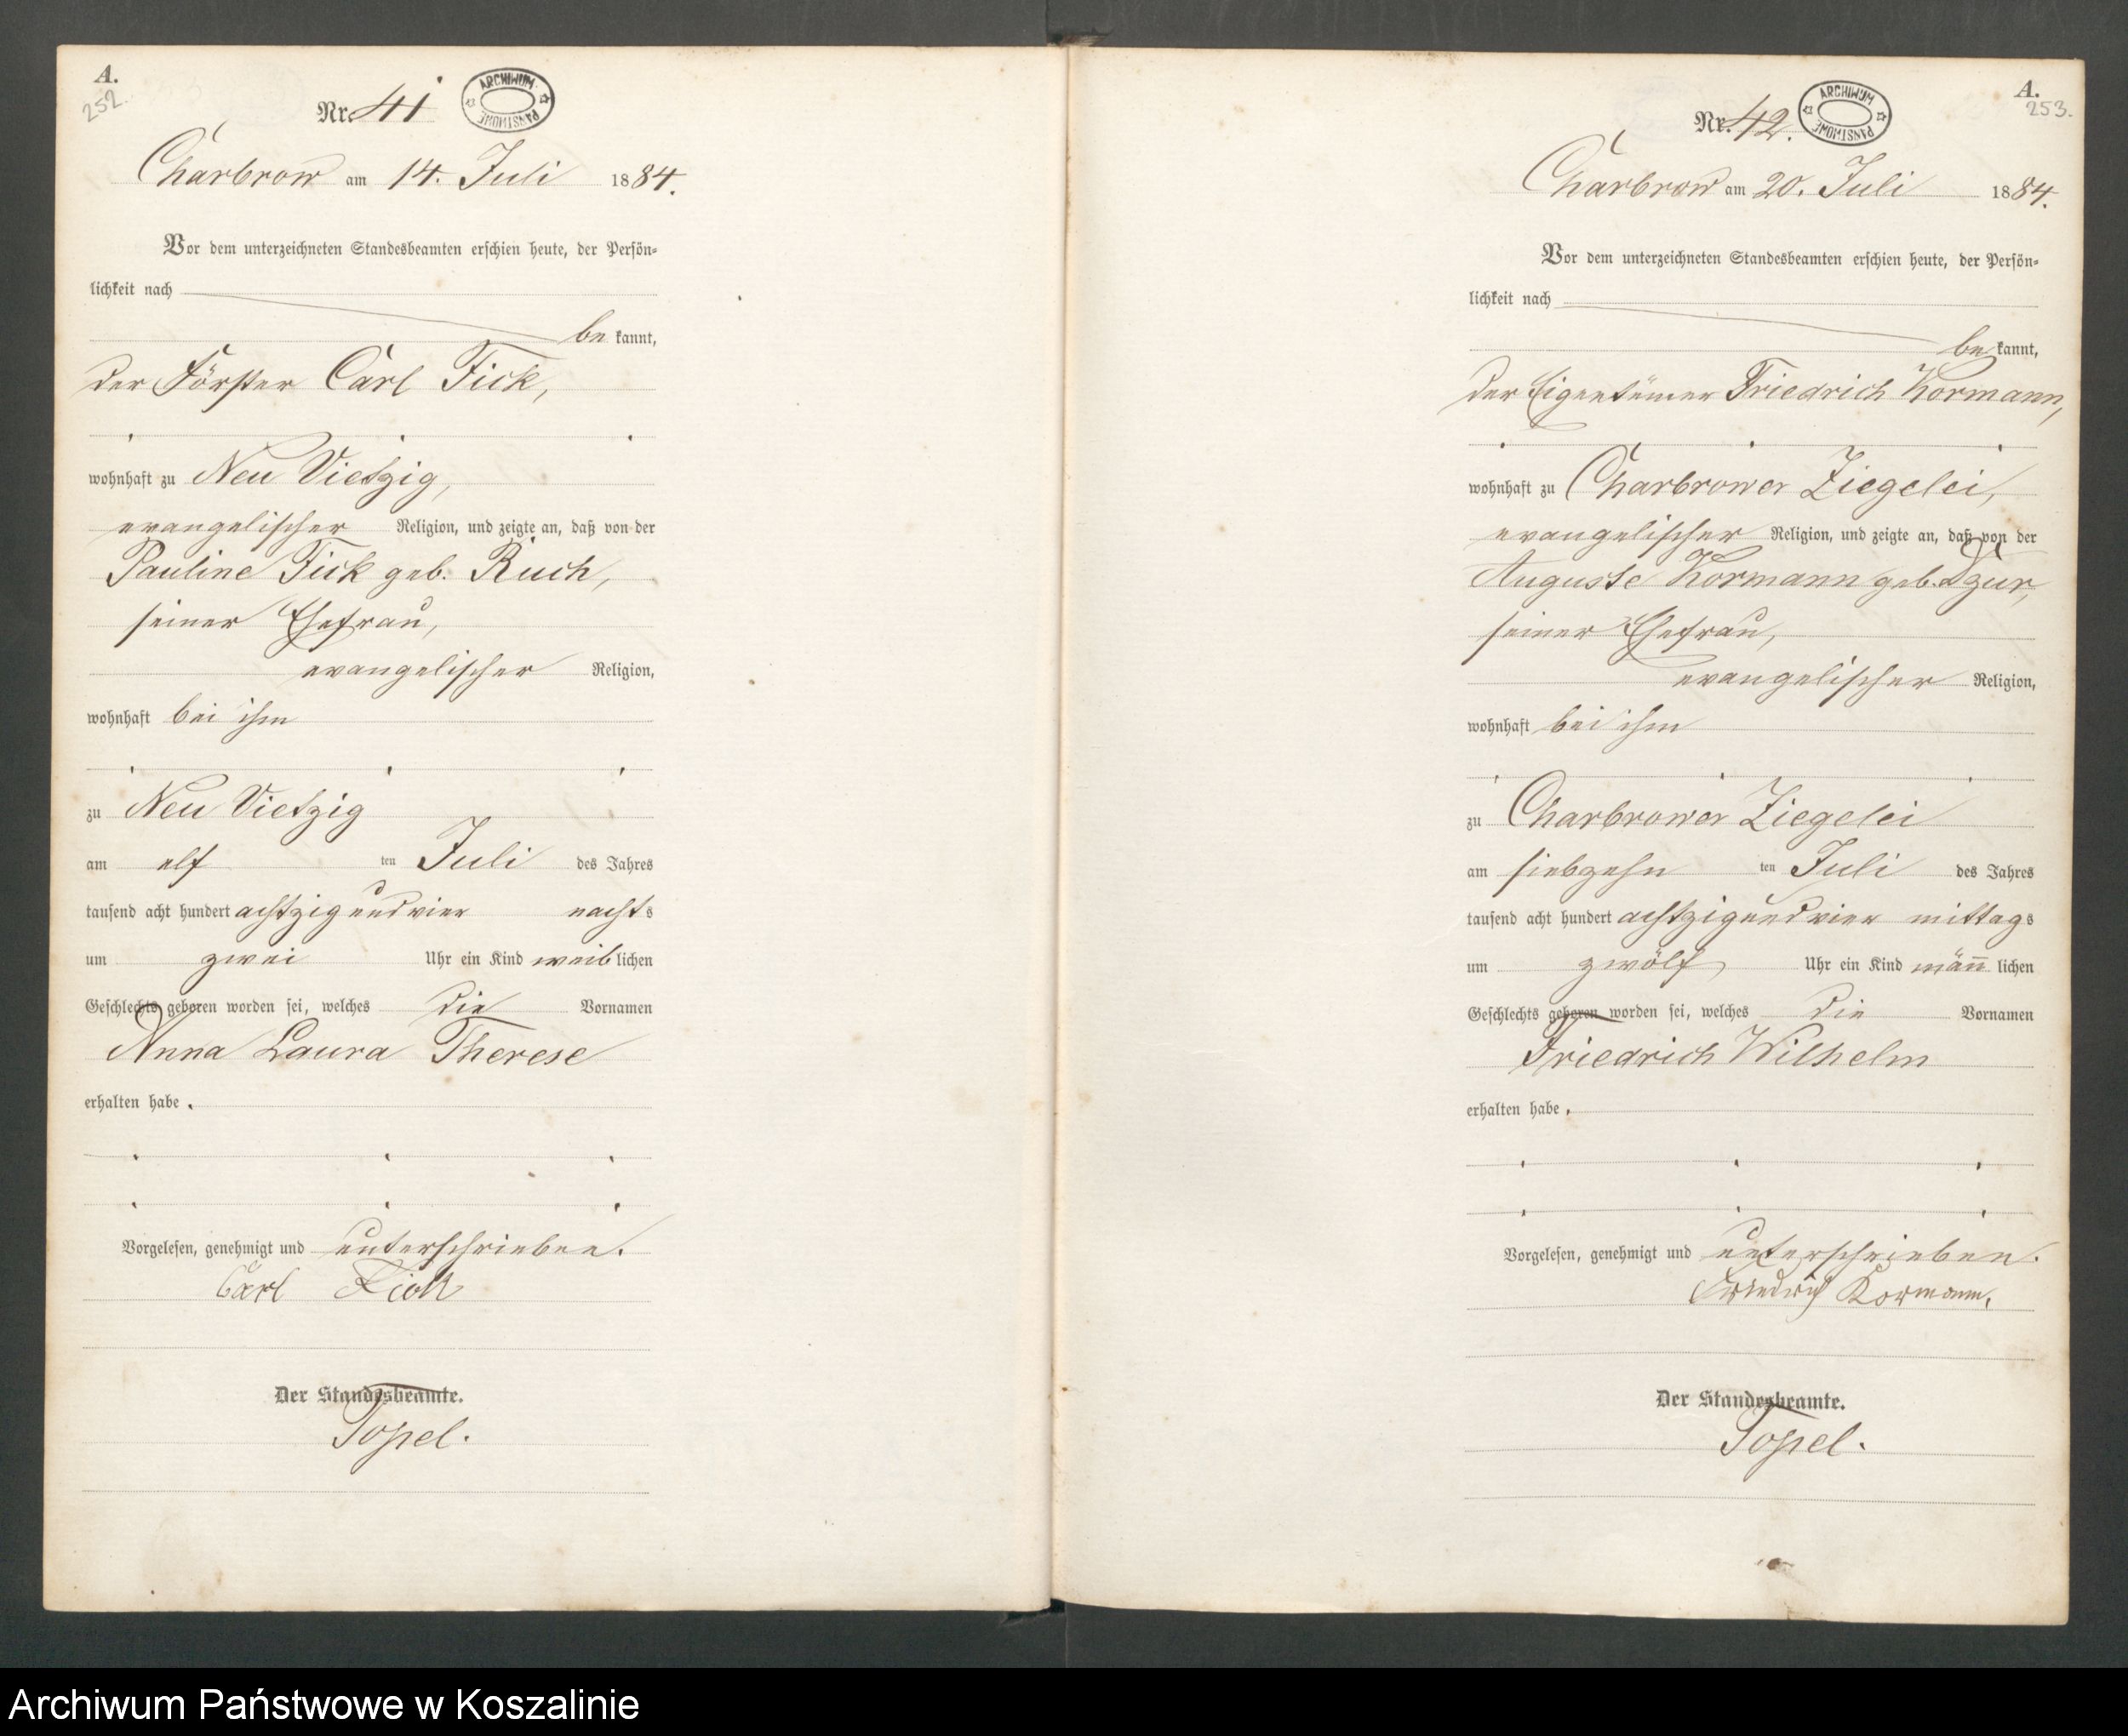 A.
252.
Nr. 41
ARCHIWUM PAŃSTWOWE
Charbrow am 14. Juli 1884.
Vor dem unterzeichneten Standesbeamten erschien heute, der Persön-
lichkeit nach
be kannt,
der Förster Carl Fick,
wohnhaft zu Neu Vietzig,
evangelischer Religion, und zeigte an, daß von der
Pauline Fick geb. Ruch,
seiner Ehefrau,
evangelischer Religion,
wohnhaft bei ihm
zu Neu Vietzig
am elf ten Juli des Jahres
tausend acht hundert achtzig und vier nachts
um zwei Uhr ein Kind weiblichen
Geschlechts geboren worden sei, welches die Vornamen
Anna Laura Therese
erhalten habe.
Vorgelesen, genehmigt und unterschrieben.
Carl Fick
Der Standesbeamte.
Topel.
A.
253.
Nr. 42.
ARCHIWUM PAŃSTWOWE
Charbrow am 20. Juli 1884.
Vor dem unterzeichneten Standesbeamten erschien heute, der Persön-
lichkeit nach
be kannt,
der Eigentümer Friedrich Kormann,
wohnhaft zu Charbrower Ziegelei,
evangelischer Religion, und zeigte an, daß von der
Auguste Kormann geb.
seiner Ehefrau,
evangelischer Religion,
wohnhaft bei ihm
zu Charbrower Ziegelei
am siebzehn ten Juli des Jahres
tausend acht hundert achtzig und vier mittags
um zwölf Uhr ein Kind männlichen
Geschlechts geboren worden sei, welches die Vornamen
Friedrich Wilhelm
erhalten habe.
Vorgelesen, genehmigt und unterschrieben.
Friedrich Kormann.
Der Standesbeamte.
Topel.
Archiwum Państwowe w Koszalinie